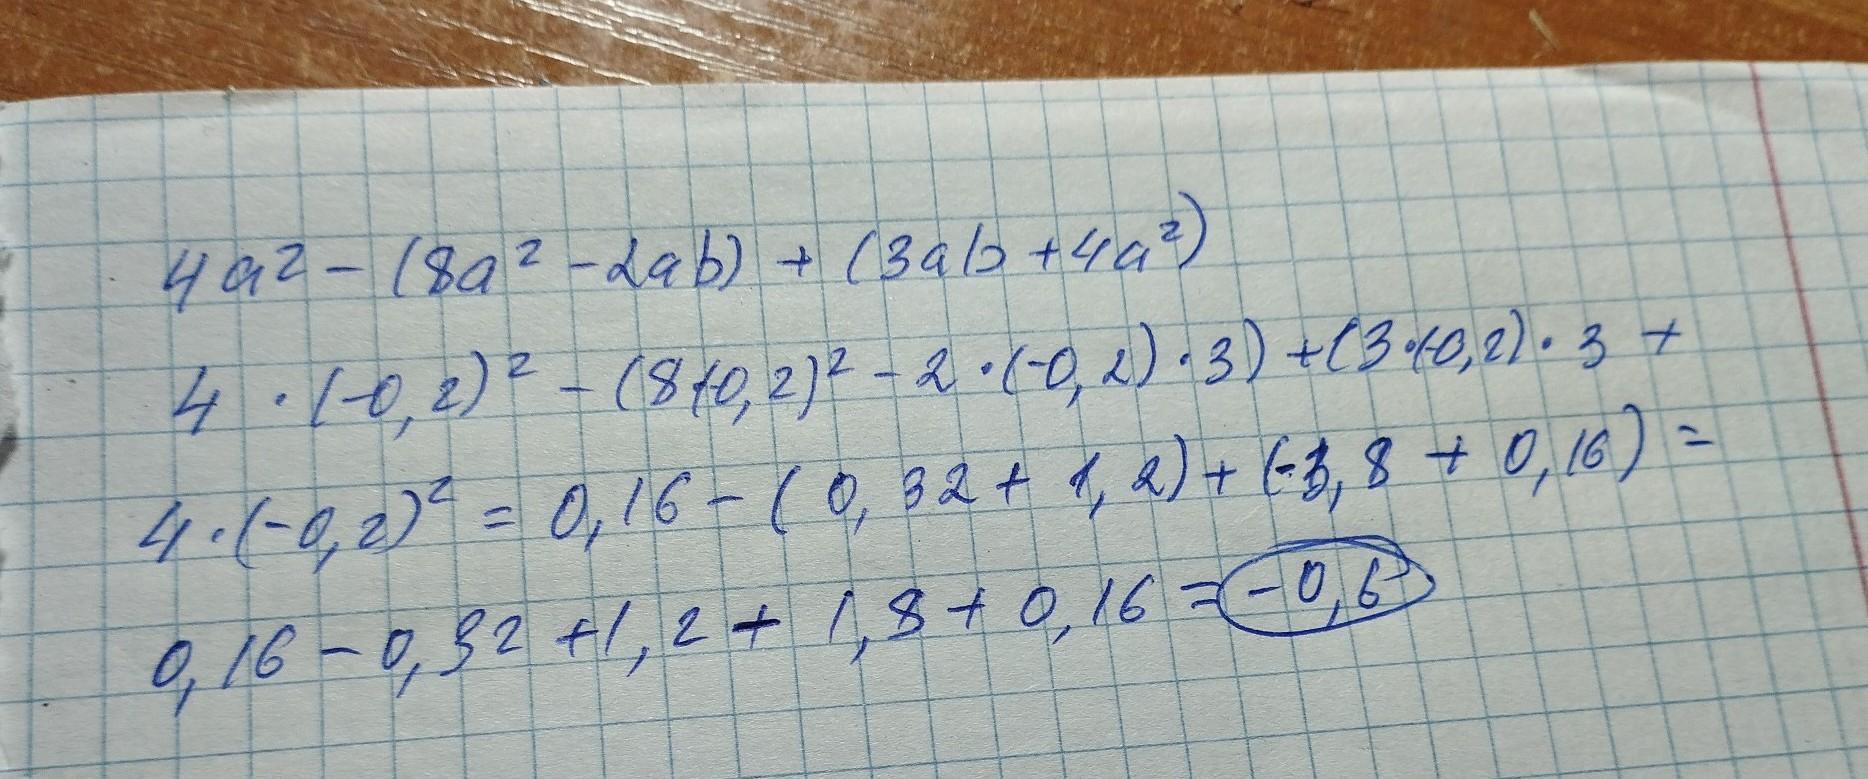 4a² - (8a² - 2ab) + (3ab + 4a²)
4 · (-0,2)² - (8(-0,2)² - 2 · (-0,2) · 3) + (3·(-0,2) · 3 +
4·(-0,2)² = 0,16 - (0,32 + 1,2) + (-1,8 + 0,16) =
0,16 - 0,32 + 1,2 + 1,8 + 0,16 = -0,6